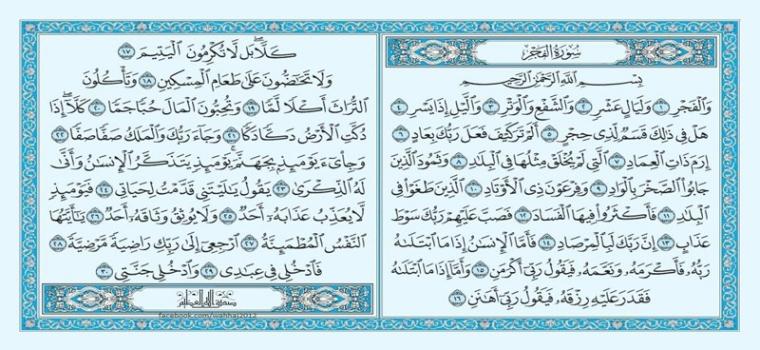 سُورَةُ الفَجْرِ
بِسْمِ اللَّهِ الرَّحْمَٰنِ الرَّحِيمِ
وَالْفَجْرِ ١ وَلَيَالٍ عَشْرٍ ٢ وَالشَّفْعِ وَالْوَتْرِ ٣ وَاللَّيْلِ إِذَا يَسْرِ ٤
هَلْ فِي ذَٰلِكَ قَسَمٌ لِذِي حِجْرٍ ٥ أَلَمْ تَرَ كَيْفَ فَعَلَ رَبُّكَ بِعَادٍ ٦
إِرَمَ ذَاتِ الْعِمَادِ ٧ الَّتِي لَمْ يُخْلَقْ مِثْلُهَا فِي الْبِلَادِ ٨ وَثَمُودَ الَّذِينَ
جَابُوا الصَّخْرَ بِالْوَادِ ٩ وَفِرْعَوْنَ ذِي الْأَوْتَادِ ١٠ الَّذِينَ طَغَوْا فِي
الْبِلَادِ ١١ فَأَكْثَرُوا فِيهَا الْفَسَادَ ١٢ فَصَبَّ عَلَيْهِمْ رَبُّكَ سَوْطَ
عَذَابٍ ١٣ إِنَّ رَبَّكَ لَبِالْمِرْصَادِ ١٤ فَأَمَّا الْإِنسَانُ إِذَا مَا ابْتَلَاهُ
رَبُّهُ فَأَكْرَمَهُ وَنَعَّمَهُ فَيَقُولُ رَبِّي أَكْرَمَنِ ١٥ وَأَمَّا إِذَا مَا ابْتَلَاهُ
فَقَدَرَ عَلَيْهِ رِزْقَهُ فَيَقُولُ رَبِّي أَهَانَنِ ١٦
كَلَّا بَل لَّا تُكْرِمُونَ الْيَتِيمَ ١٧
وَلَا تَحَاضُّونَ عَلَىٰ طَعَامِ الْمِسْكِينِ ١٨ وَتَأْكُلُونَ
التُّرَاثَ أَكْلًا لَّمًّا ١٩ وَتُحِبُّونَ الْمَالَ حُبًّا جَمًّا ٢٠ كَلَّا إِذَا
دُكَّتِ الْأَرْضُ دَكًّا دَكًّا ٢١ وَجَاءَ رَبُّكَ وَالْمَلَكُ صَفًّا صَفًّا ٢٢
وَجِاْيءَ يَوْمَئِذٍ بِجَهَنَّمَ يَوْمَئِذٍ يَتَذَكَّرُ الْإِنسَانُ وَأَنَّىٰ
لَهُ الذِّكْرَىٰ ٢٣ يَقُولُ يَا لَيْتَنِي قَدَّمْتُ لِحَيَاتِي ٢٤ فَيَوْمَئِذٍ
لَّا يُعَذِّبُ عَذَابَهُ أَحَدٌ ٢٥ وَلَا يُوثِقُ وَثَاقَهُ أَحَدٌ ٢٦ يَا أَيَّتُهَا
النَّفْسُ الْمُطْمَئِنَّةُ ٢٧ ارْجِعِي إِلَىٰ رَبِّكِ رَاضِيَةً مَّرْضِيَّةً ٢٨
فَادْخُلِي فِي عِبَادِي ٢٩ وَادْخُلِي جَنَّتِي ٣٠
facebook.com/wahhaj2012